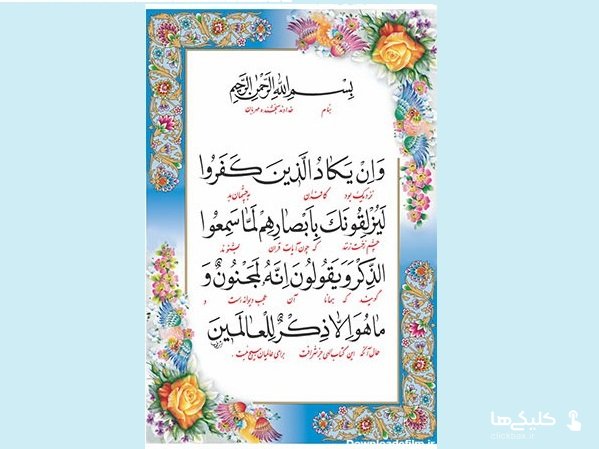 بِسْمِ اللهِ الرَّحْمٰنِ الرَّحِيمِ
بنام خداوند بخشنده مهربان
وَاِنْ يَكَادُ الَّذينَ كَفَرُوا
نزدیک بود کافران به چشمان بد
لَيُزْلِقُونَكَ بِاَبْصَارِهِمْ لَمَّا سَمِعُوا
چشم زخمت زنند که چون آیات قرآن بشنوند
الذِّكْرَ وَيَقُولُونَ اِنَّهُ لَمَجْنُونٌ وَ
گویند که همانا آن عجب دیوانه است و
مَا هُوَ اِلَّا ذِكْرٌ لِلْعَالَمينَ
حال آنکه این کتاب الهی جز شرافت برای عالمیان هیچ نیست.
کلیکی‌ها
clickbaz.ir